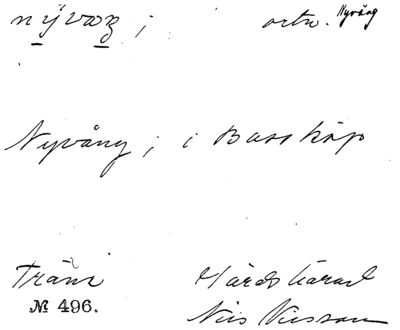 nÿvaŋ ; ortn. Nyvång
Nyvång ; i Bosskåp
Träne Härads härad
№ 496. Nils Nilsson